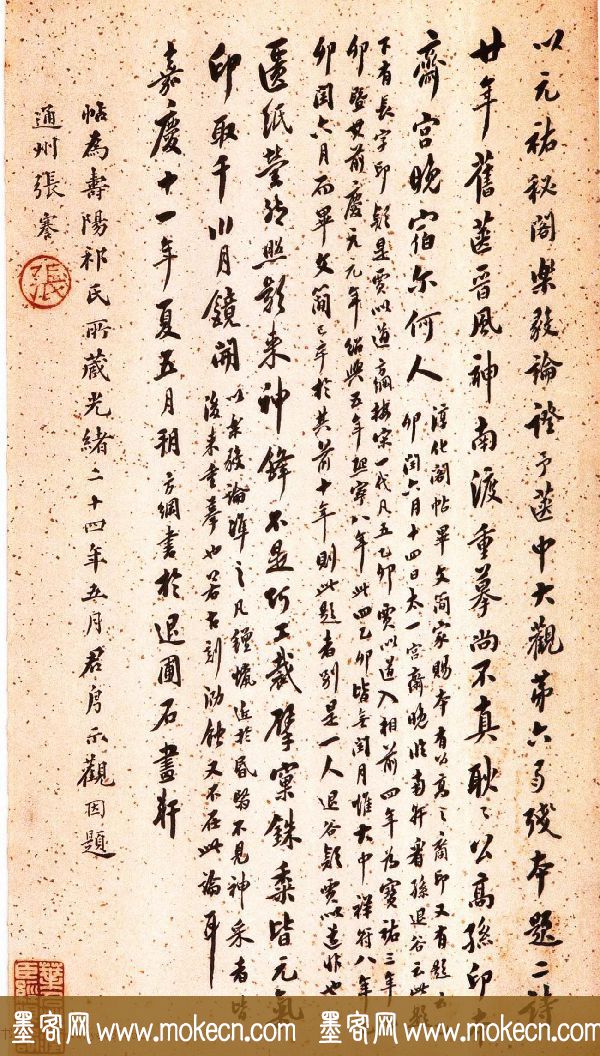 以元祐秘閣樂毅論證予篋中大觀第六卷殘本題二詩
廿年舊篋晉風神南渡重摹尚不真耿耿公高孫印
齋宮晚宿尔何人
淳化閣帖畢文簡家賜本有公高之裔印又有題云
卯閏六月十四日太一宮齋晚臨南軒看孫退谷云此題
下有長字印疑是賈似道方綱按宋一代凡五乙卯賈似道入相前四年為寶祐三年
卯暨其前慶元元年紹興五年熙寧八年此四乙卯皆無閏月惟大中祥符八年
卯閏六月而畢文簡已卒於其前十年則此題者別是一人退谷疑賈似道非也
匱紙瑩然照影來神鋒不是巧工裁摩窠銖黍皆元氣
印取千川月鏡開
以樂毅論準之凡鍾懷近於昏督不見神采者皆
後來重摹也若古刻泐蝕又不在此論耳
嘉慶十一年夏五月朔方綱書於退圃石畫軒
帖為壽陽祁氏所藏光緒二十四年五月君月示觀因題
通州張謇
張
墨客网 www.mokecn.com 墨客网 www.mokecn.com